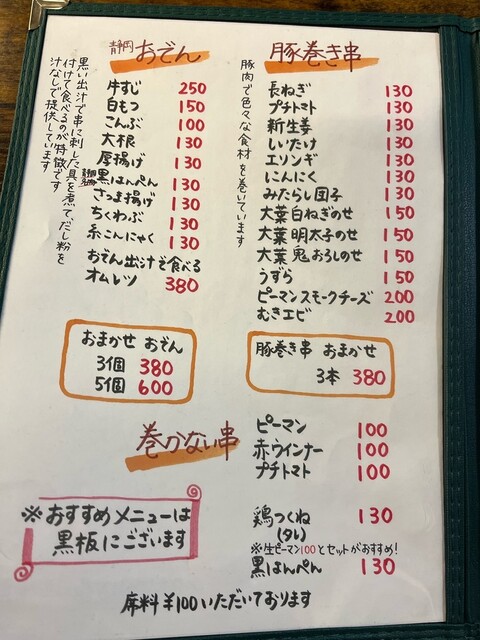 静岡 おでん
黒い出汁で串に刺した具を煮て、だし粉を
付けて食べるのが特徴です
汁なしで提供しています
牛すじ 250
白もつ 150
こんぶ 100
大根 130
厚揚げ 130
静岡黒はんぺん 130
さつま揚げ 130
ちくわぶ 130
糸こんにゃく 130
おでん出汁で食べる
オムレツ 380
おまかせ おでん
3個 380
5個 600
豚巻き串
豚肉で色々な食材を巻いています
長ねぎ 130
プチトマト 130
新生姜 130
しいたけ 130
エリンギ 130
にんにく 130
みたらし団子 130
大葉白ねぎのせ 150
大葉明太子のせ 150
大葉鬼おろしのせ 150
うずら 150
ピーマンスモークチーズ 200
むきエビ 200
豚巻き串 おまかせ
3本 380
巻かない串
ピーマン 100
赤ウインナー 100
プチトマト 100
鶏つくね 130
(タレ)
※生ピーマン100とセットがおすすめ!
黒はんぺん 130
※おすすめメニューは
黒板にございます
席料¥100いただいております